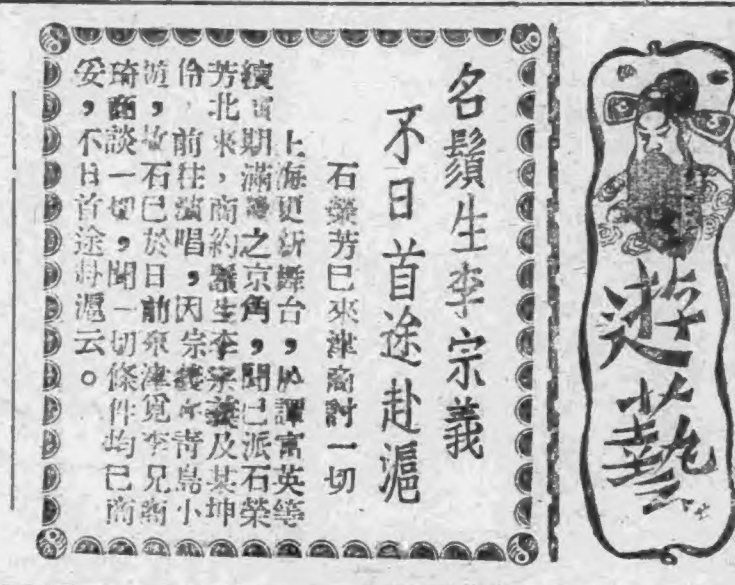 遊藝
名鬚生李宗義
不日首途赴滬
石榮芳已來津商討一切
上海更新舞台，譚富英等
期滿之京角，聞已派石榮
芳北來，商約鬚生李宗義及某坤
伶，前往演唱，因宗義青島小
遊，故石已於日前來津覓李兄
琦面談一切，聞一切條件均已商
妥，不日首途赴滬云。